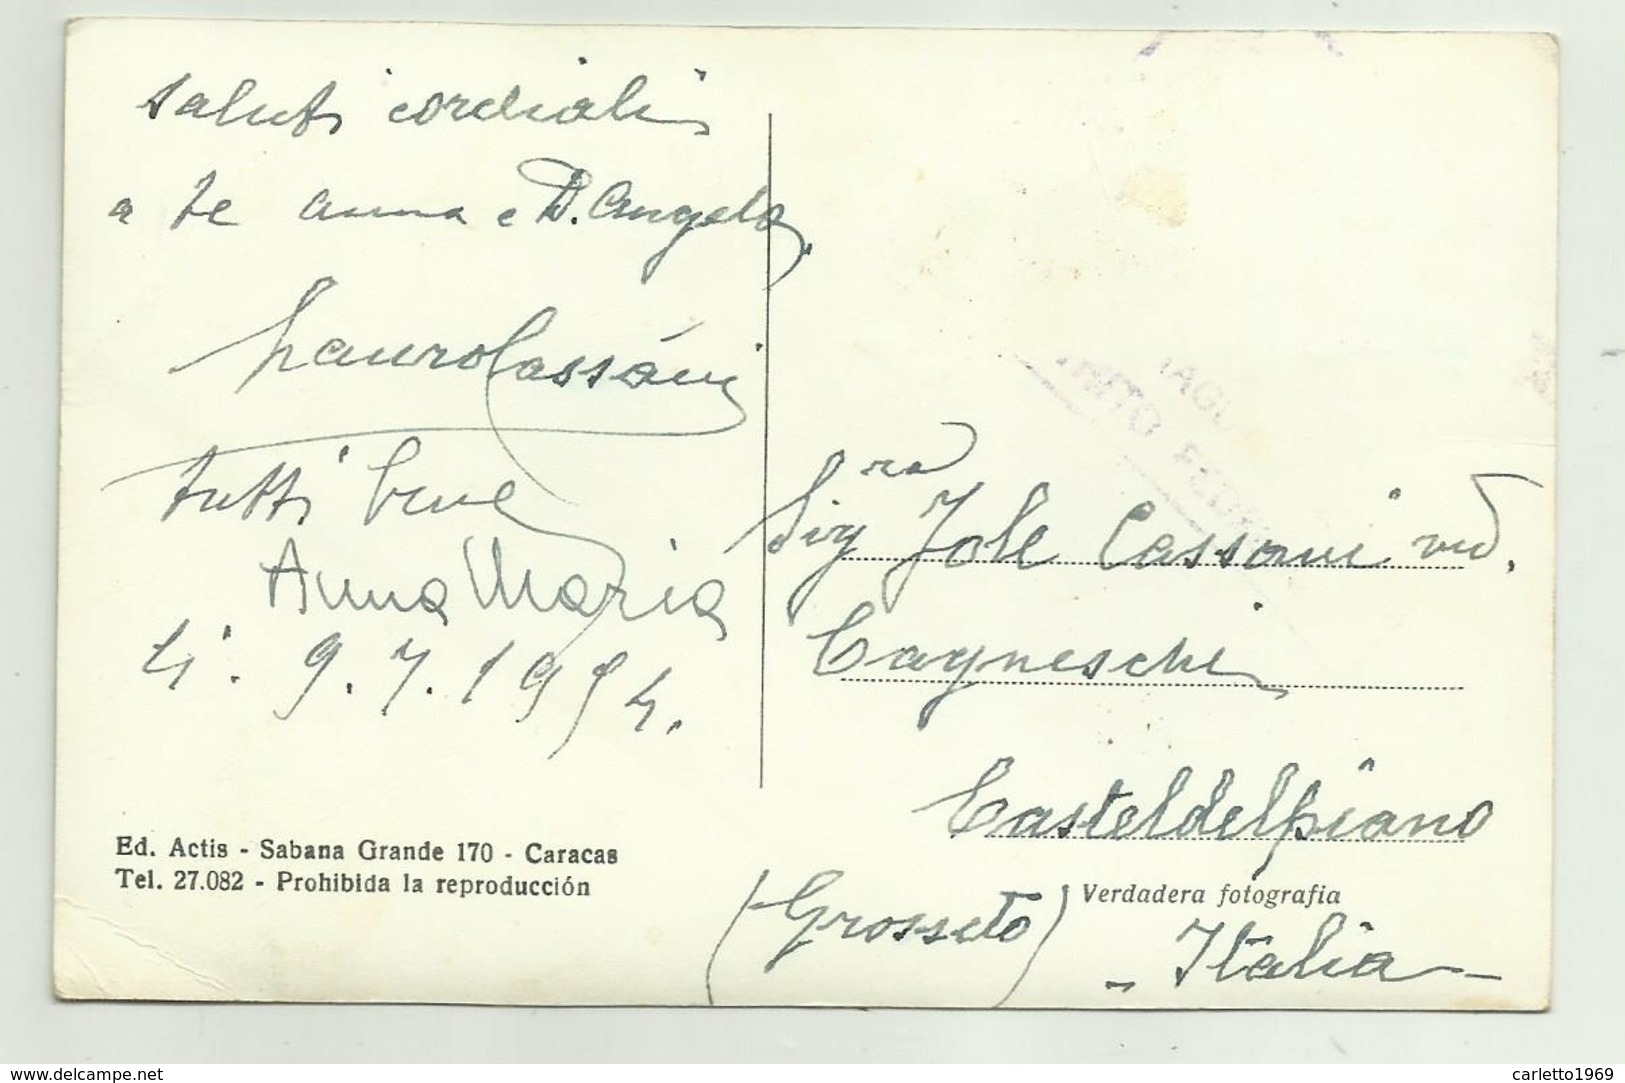 saluti cordiali
a te anna e D. Angelo,
Lauro Cassáni
tutti bene
Anna Maria
li. 9.7.1954.
Ed. Actis - Sabana Grande 170 - Caracas
Tel. 27.082 - Prohibida la reproducción
Sig.ra Jole Cassani ved.
Cagneschi
Casteldelpiano
Verdadera fotografia
(Grosseto)
- Italia -
www.delcampe.net
carletto1969